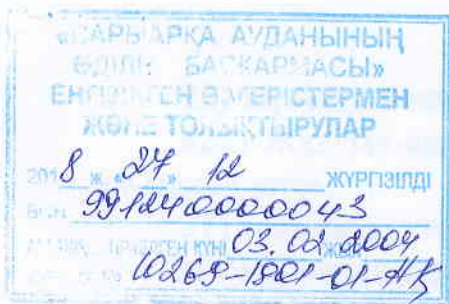 «САРЫАРҚА АУДАНЫНЫҢ
ӘДІЛЕТ БАСҚАРМАСЫ»
ЕНГІЗІЛГЕН ӨЗГЕРІСТЕРМЕН
ЖӘНЕ ТОЛЫҚТЫРУЛАР
2018 ж. «27» 12 ЖҮРГІЗІЛДІ
БСН 991240000043
КҮНІ 03.02.2004
10269-1901-01-АҚ